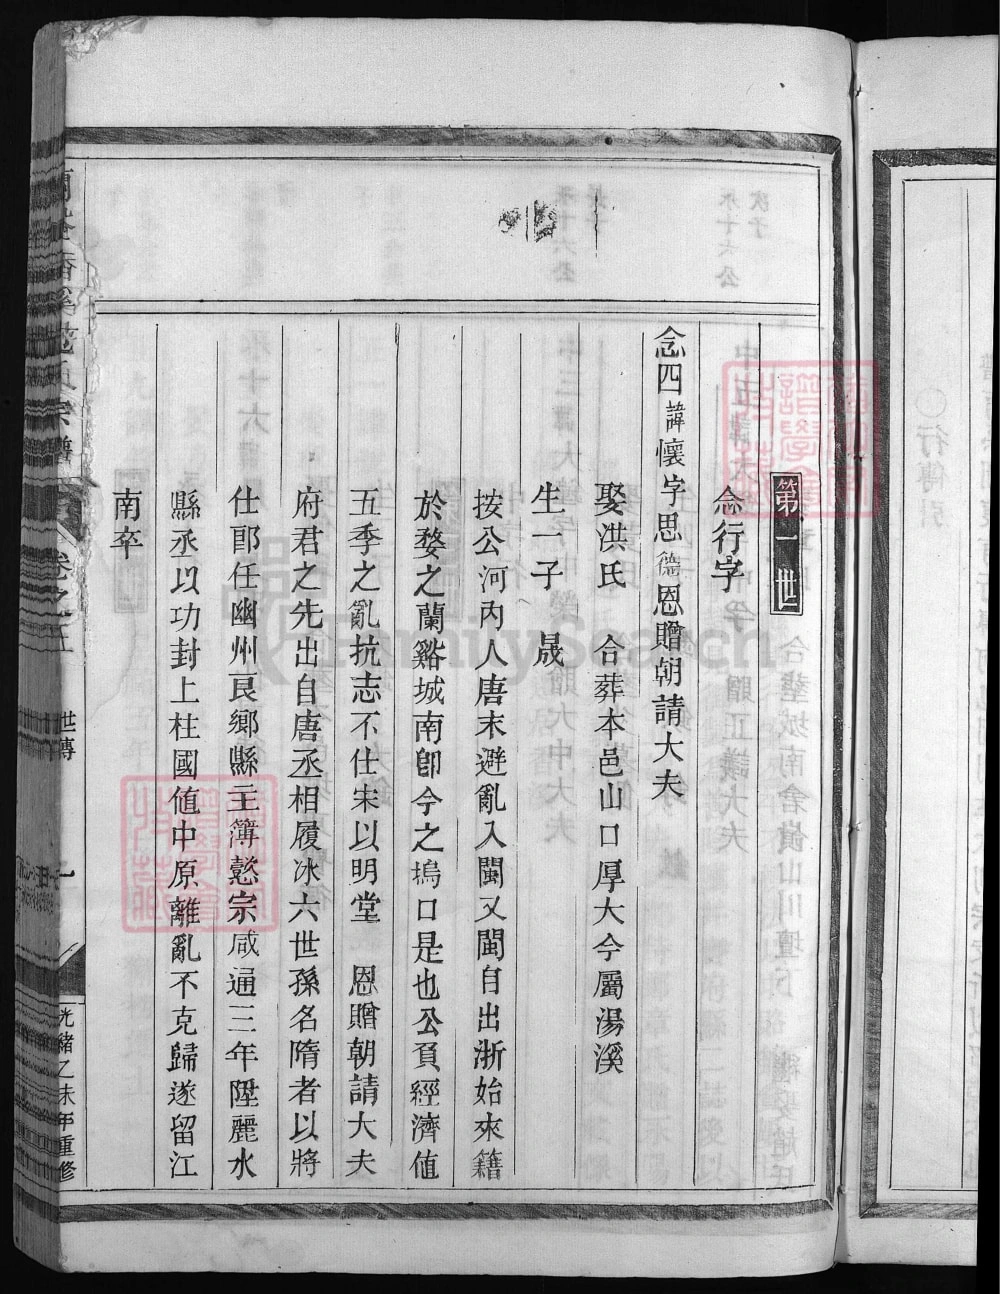 第一世
念行字
念四諱懷字思德恩贈朝請大夫
娶洪氏　合葬本邑山口厚大今屬湯溪
生一子　晟
按公河內人唐末避亂入閩又閩自出浙始來籍
於婺之蘭谿城南卽今之塢口是也公負經濟值
五季之亂抗志不仕宋以明堂　恩贈朝請大夫
府君之先出自唐丞相履冰六世孫名隋者以將
仕郎任幽州良鄉縣主簿懿宗咸通三年陞麗水
縣丞以功封上柱國值中原離亂不克歸遂留江
南卒
氏宗譜
卷之五
世傳
一
光緒乙未年重修
行傳引
FamilySearch